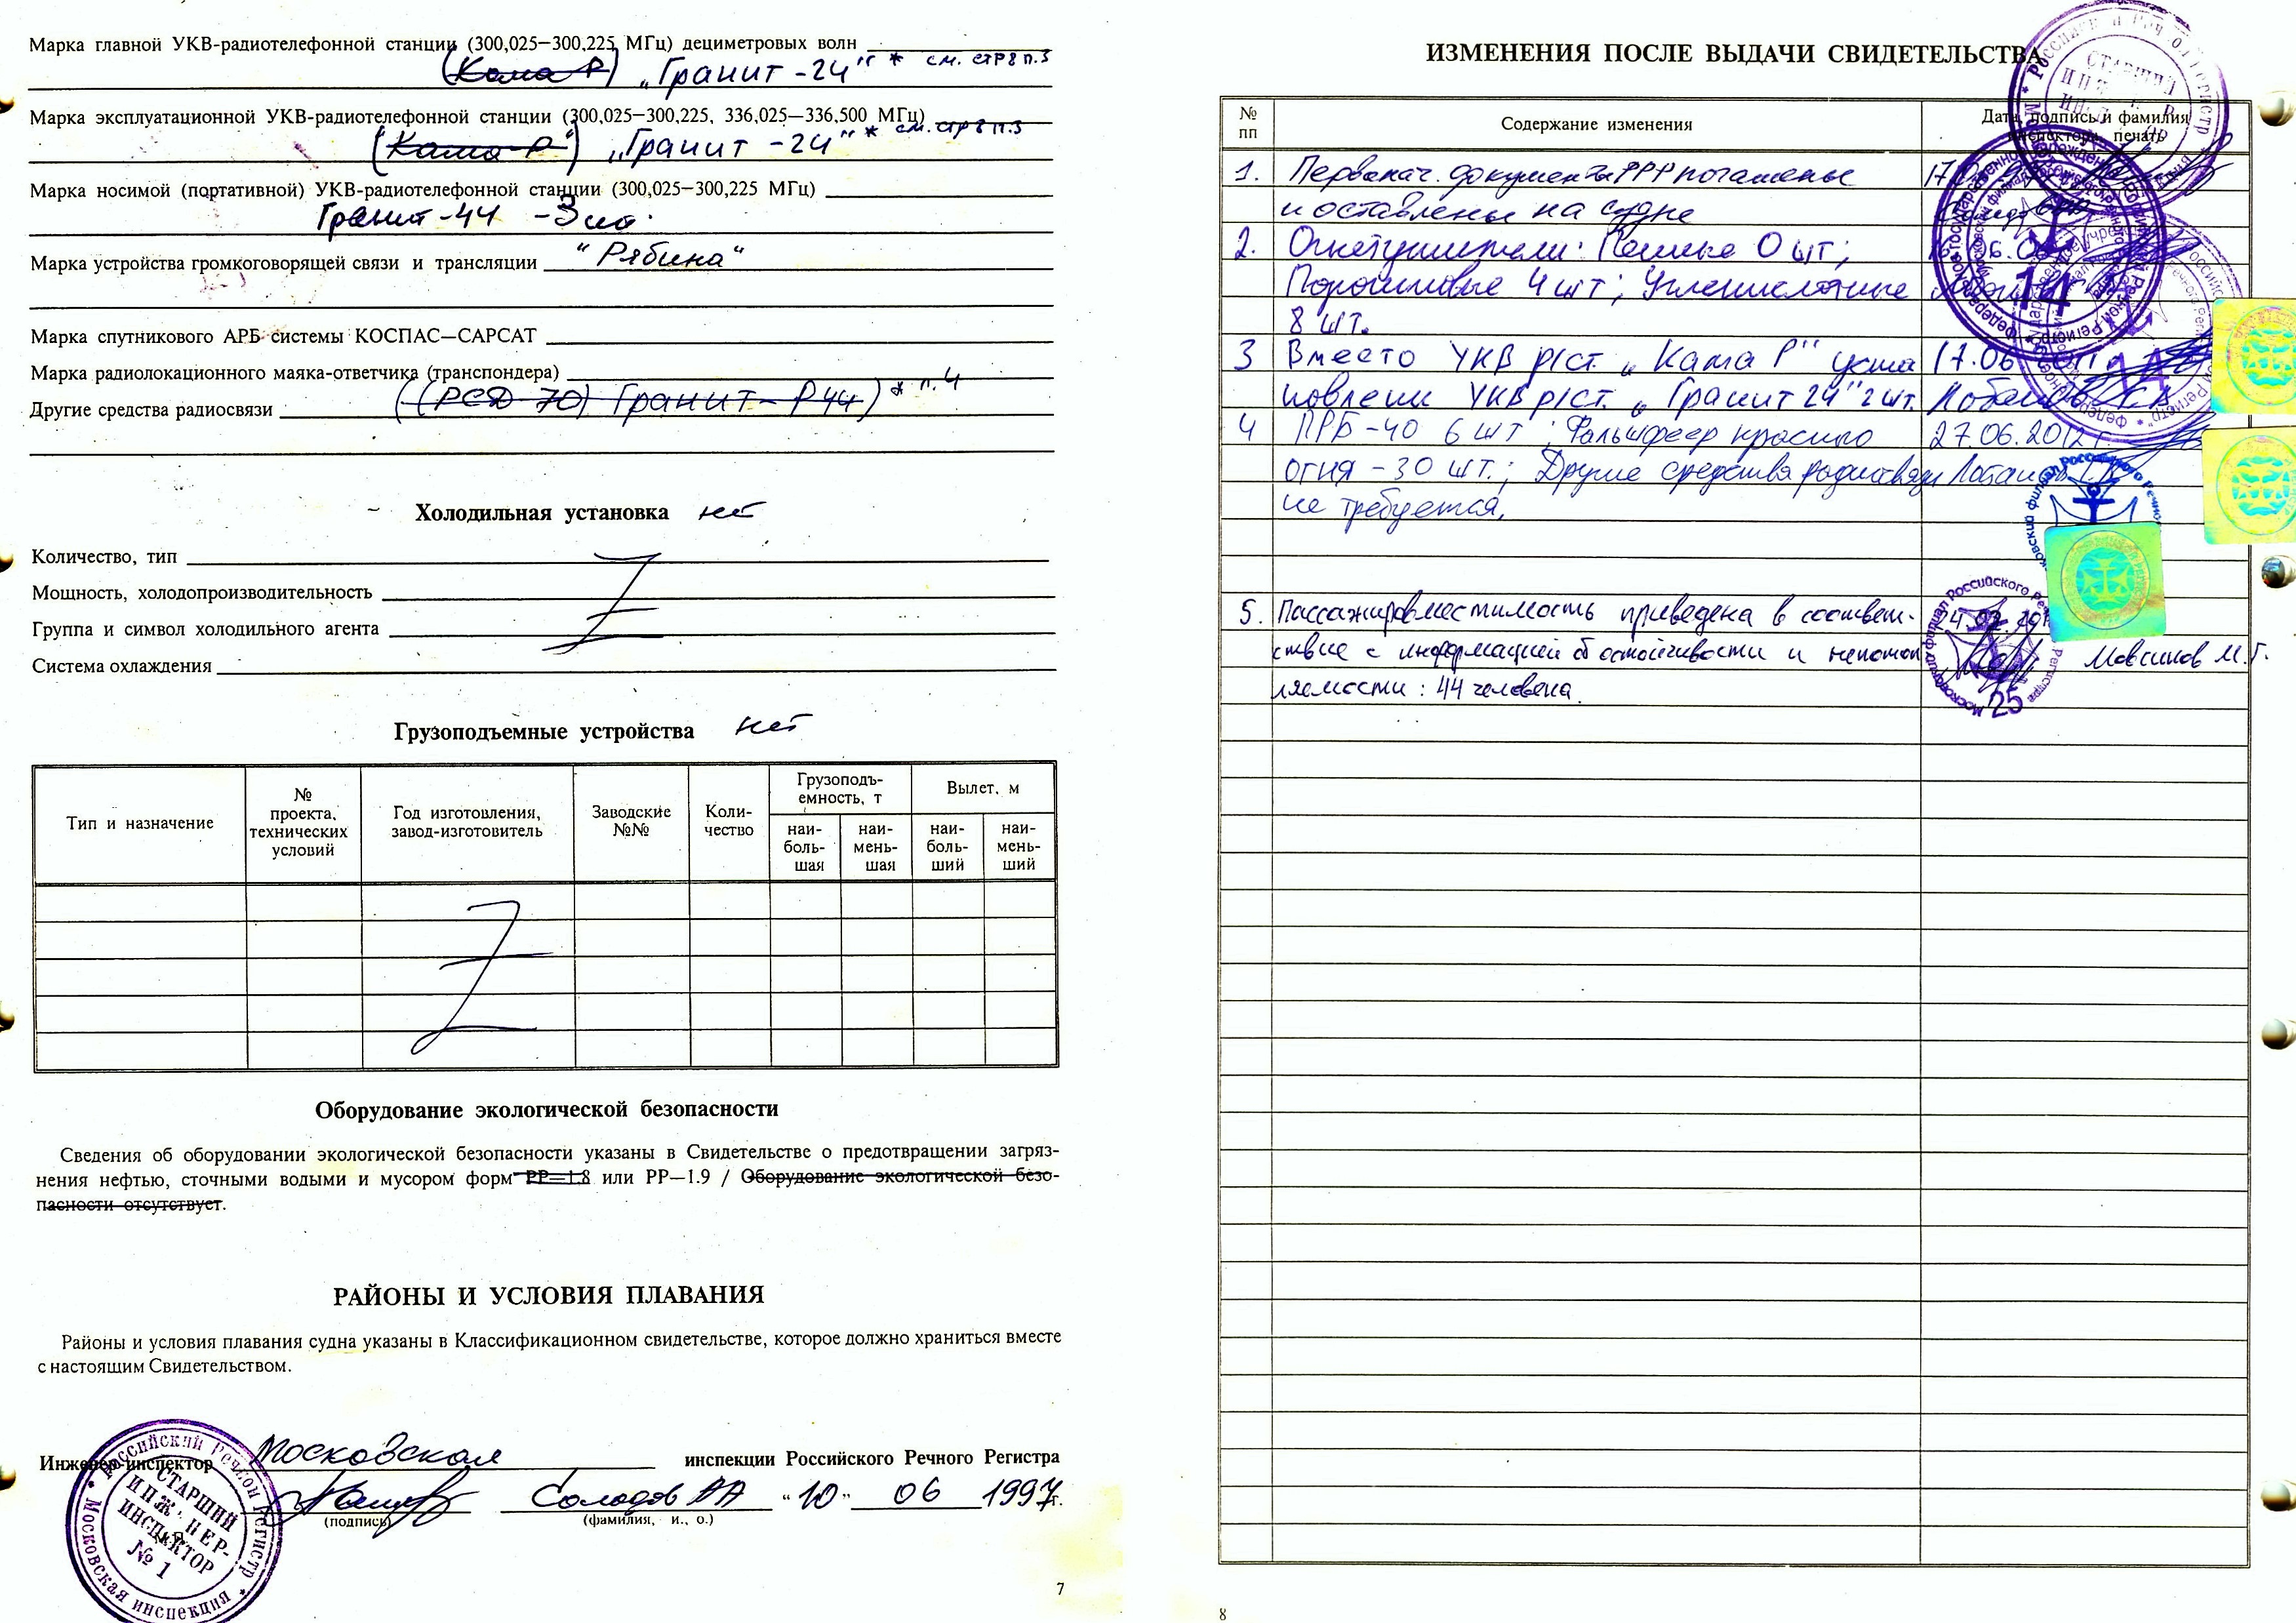 Марка главной УКВ-радиотелефонной станции (300,025—300,225 МГц) дециметровых волн
(Кама Р) „Гранит-24" * см. стр 8 п.3
Марка эксплуатационной УКВ-радиотелефонной станции (300,025—300,225, 336,025—336,500 МГц)
(Кама-Р") „Гранит-24" * см. стр 8 п.3
Марка носимой (портативной) УКВ-радиотелефонной станции (300,025—300,225 МГц)
Гранит-44 -3шт.
Марка устройства громкоговорящей связи и трансляции "Рябина"
Марка спутникового АРБ системы КОСПАС—САРСАТ
Марка радиолокационного маяка-ответчика (транспондера)
Другие средства радиосвязи ((РСД 70) Гранит-Р44) * п.4
Холодильная установка нет
Количество, тип
Мощность, холодопроизводительность
Группа и символ холодильного агента
Система охлаждения
Грузоподъемные устройства нет
Тип и назначение
№
проекта,
технических
условий
Год изготовления,
завод-изготовитель
Заводские
№№
Коли-
чество
Грузоподъ-
емность, т
наи-
боль-
шая
наи-
мень-
шая
Вылет, м
наи-
боль-
ший
наи-
мень-
ший
Оборудование экологической безопасности
Сведения об оборудовании экологической безопасности указаны в Свидетельстве о предотвращении загряз-
нения нефтью, сточными водыми и мусором форм РР—1.8 или РР—1.9 / Оборудование экологической безо-
пасности отсутствует.
РАЙОНЫ И УСЛОВИЯ ПЛАВАНИЯ
Районы и условия плавания судна указаны в Классификационном свидетельстве, которое должно храниться вместе
с настоящим Свидетельством.
Инженер-инспектор Московская инспекции Российского Речного Регистра
Солодов АА "10" 06 1997г.
(подпись) (фамилия, и., о.)
Российский Речной Регистр * Московская инспекция *
СТАРШИЙ
ИНЖЕНЕР-
ИНСПЕКТОР
№ 1
7
ИЗМЕНЕНИЯ ПОСЛЕ ВЫДАЧИ СВИДЕТЕЛЬСТВА
№
пп
Содержание изменения
Дата, подпись и фамилия
инспектора, печать
1. Первонач. документы РРР погашены
и оставлены на судне
2. Огнетушители: Пенные 0 шт;
Порошковые 4 шт; Углекислотные
8 шт.
3 Вместо УКВ р/ст. „Кама Р" уста 17.06
новлены УКВ р/ст. „Гранит 24" 2 шт.
4 ПРБ-40 6 шт; Фальшфеер красного 27.06.2012г.
огня - 30 шт.; Другие средства радиосвязи
не требуется.
5. Пассажировместимость приведена в соответ-
ствие с информацией об остойчивости и непотоп
ляемости: 44 человека.
Мовсинов М.Г.
25
14
8